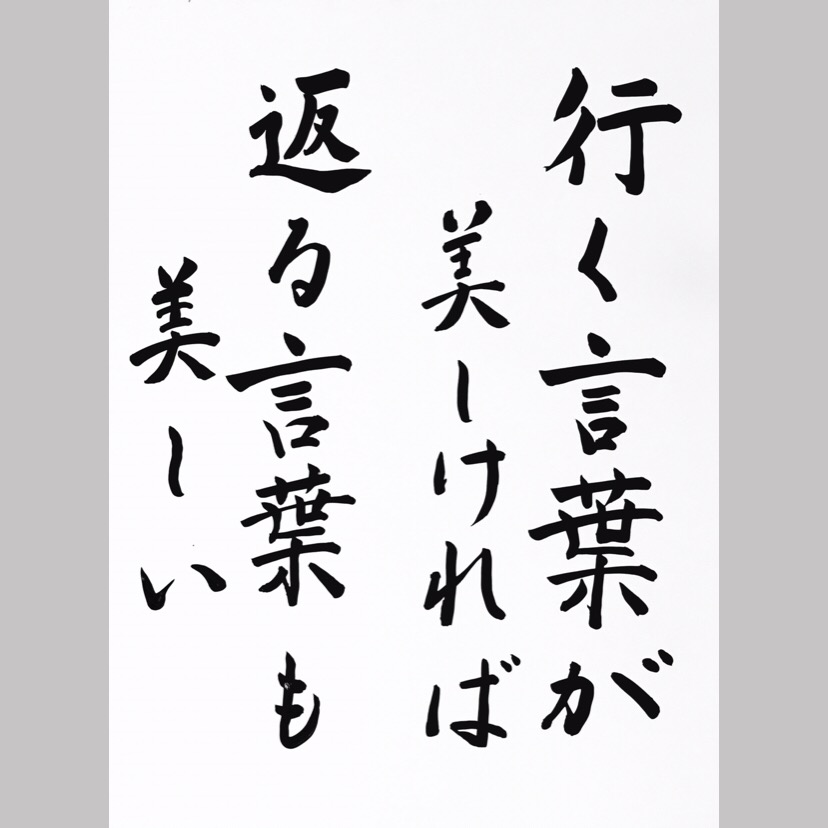 行く言葉が
美しければ
返る言葉も
美しい